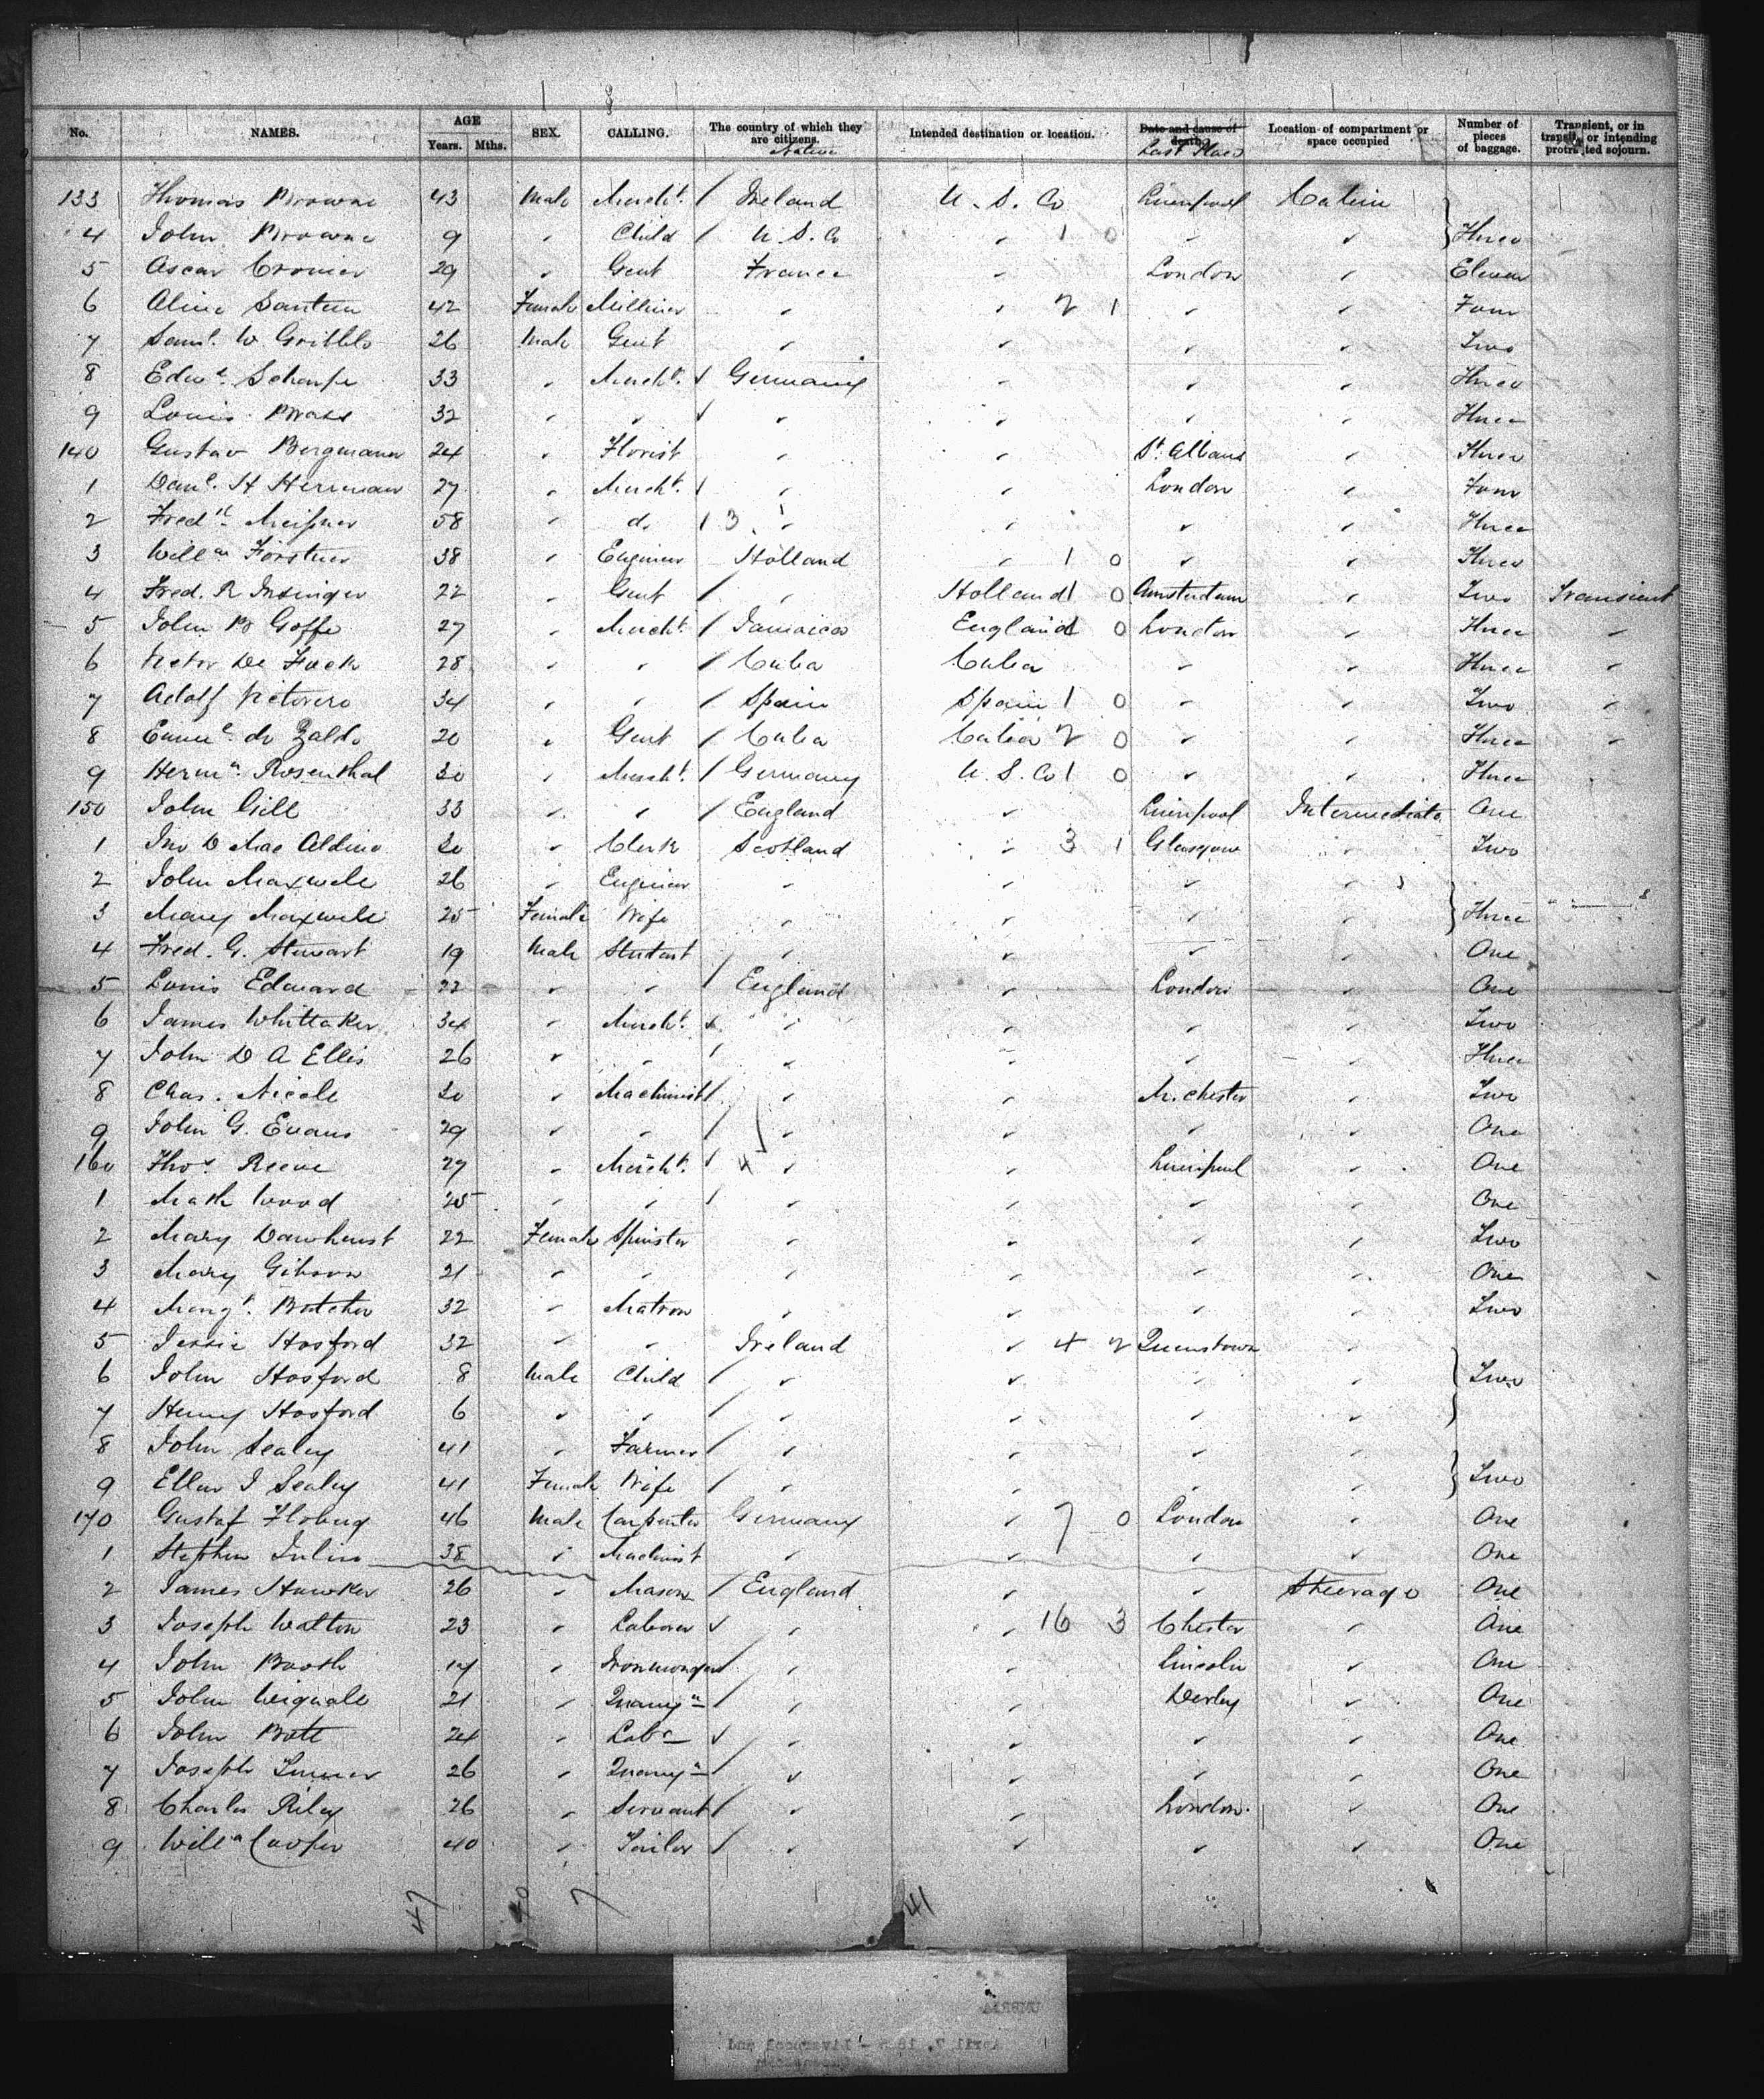 No. NAMES. AGE Years. Mths. SEX. CALLING. The country of which they are citizens. Native Intended destination or location. Date and cause of death. Last Place Location of compartment or space occupied Number of pieces of baggage. Transient, or in transit, or intending protracted sojourn.
133 Thomas Browne 43 Male Mercht. / Ireland U. S. Co Liverpool Cabin
4 John Browne 9 " Child / U. S. Co " 1 0 " " } Three
5 Oscar Cronier 29 " Gent France " London " Eleven
6 Aline 42 Female Milliner " " 2 1 " " Four
7 Saml. W Gribble 26 Male Gent " " " " Two
8 Edwd. Scharfe 33 " Mercht. / Germany " " " Three
9 Louis 32 " " / " " " " Three
140 Gustav Bergmann 24 " Florist " " St. Albans " Three
1 Danl. H Herrman 27 " Mercht. / " " London " Four
2 Fredk. Meissner 58 " do / 3 " " " " Three
3 Willm Förstner 38 " Engineer Holland " 1 0 " " Three
4 Fred. R Insinger 22 " Gent / " Holland 1 0 Amsterdam " Two Transient
5 John B Goffe 27 " Mercht. / Jamaica England 1 0 London " Three "
6 Victor De 28 " " / Cuba Cuba " " Three "
7 Adolf Victorero 34 " " / Spain Spain 1 0 " " Two "
8 de Zaldo 20 " Gent / Cuba Cuba 2 0 " " Three "
9 Hermn. Rosenthal 30 " Mercht. / Germany U. S. Co 1 0 " " Three
150 John Gill 33 " " / England " Liverpool Intermediate One
1 Jno D Mac Aldine 20 " Clerk Scotland " 3 1 Glasgow " Two
2 John Maxwell 26 " Engineer " " " "
3 Mary Maxwell 25 Female Wife " " " " } Three
4 Fred. G. Stewart 19 Male Student " " " " One
5 Louis Edward 22 " " / England " London " One
6 James Whittaker 34 " Mercht. / " " " " Two
7 John D A Ellis 26 " " / " " " " Three
8 Chas. Nicole 20 " Machinist / " " M.chester " Two
9 John G. Evans 29 " " / " " " " One
160 Thos. Reeve 27 " Mercht. / 4 " " Liverpool " One
1 Math Wood 25 " " / " " " " One
2 Mary Dawhurst 22 Female Spinster " " " " Two
3 Mary Gibson 21 " " " " " " One
4 Margt. Butcher 32 " Matron " " " " Two
5 Jessie Hosford 32 " " Ireland " 4 2 Queenstown "
6 John Hosford 8 Male Child / " " " " } Two
7 Henry Hosford 6 " " / " " " "
8 John Sealey 41 " Farmer / " " " "
9 Ellen J Sealey 41 Female Wife / " " " " } Two
170 Gustaf 46 Male Carpenter Germany " 7 0 London " One
1 Stephen Julius 38 " Machinist " " " " One
2 James Hawker 26 " Mason / England " " Steerage One
3 Joseph Walton 23 " Laborer / " " 16 3 Chester " One
4 John Booth 17 " Ironmonger / " " Lincoln " One
5 John Wignall 21 " Quarryn / " " Derby " One
6 John Bott 24 " Labr / " " " " One
7 Joseph 26 " Quarryn / " " " " One
8 Charles Riley 26 " Servant / " " London " One
9 Willm Cooper 40 " Tailor / " " " " One
47 40 7 41
UMBRIA
April 7, - Liverpool and
Queenstown